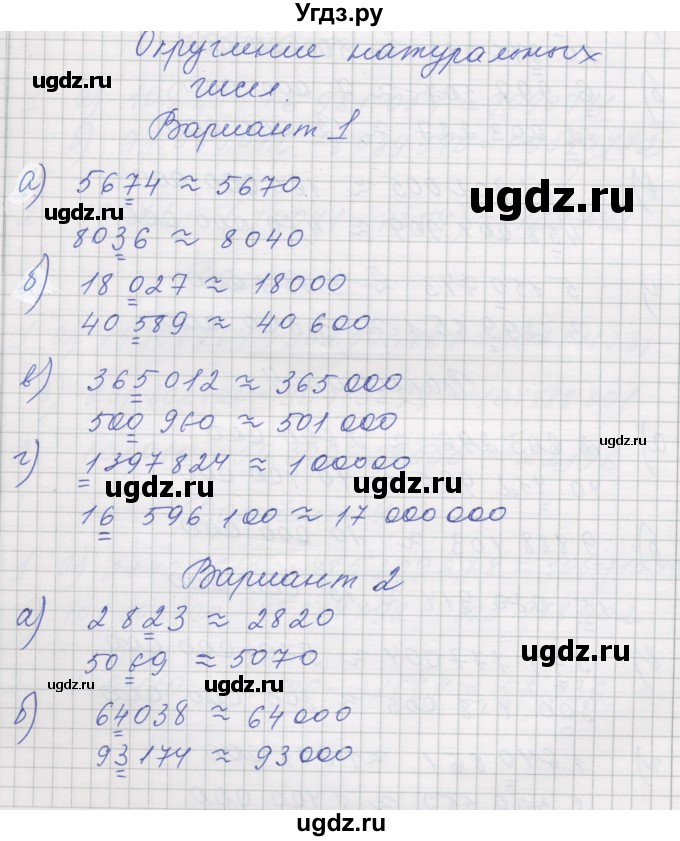 Угдз.ру
Округление натуральных
ugdz.ru
чисел.
ugdz.ru
Вариант 1.
а) 5674 ≈ 5670
ugdz.ru
ugdz.ru
8036 ≈ 8040
б) 18 027 ≈ 18000
ugdz.ru
40 589 ≈ 40 600
в) 365 012 ≈ 365 000
500 960 ≈ 501 000
ugdz.ru
г) 1397824 ≈ 100000
ugdz.ru
ugdz.ru
16 596 100 ≈ 17 000 000
Вариант 2
а) 2823 ≈ 2820
ugdz.ru
5069 ≈ 5070
ugdz.ru
ugdz.ru
б) 64038 ≈ 64 000
93 174 ≈ 93 000
ugdz.ru